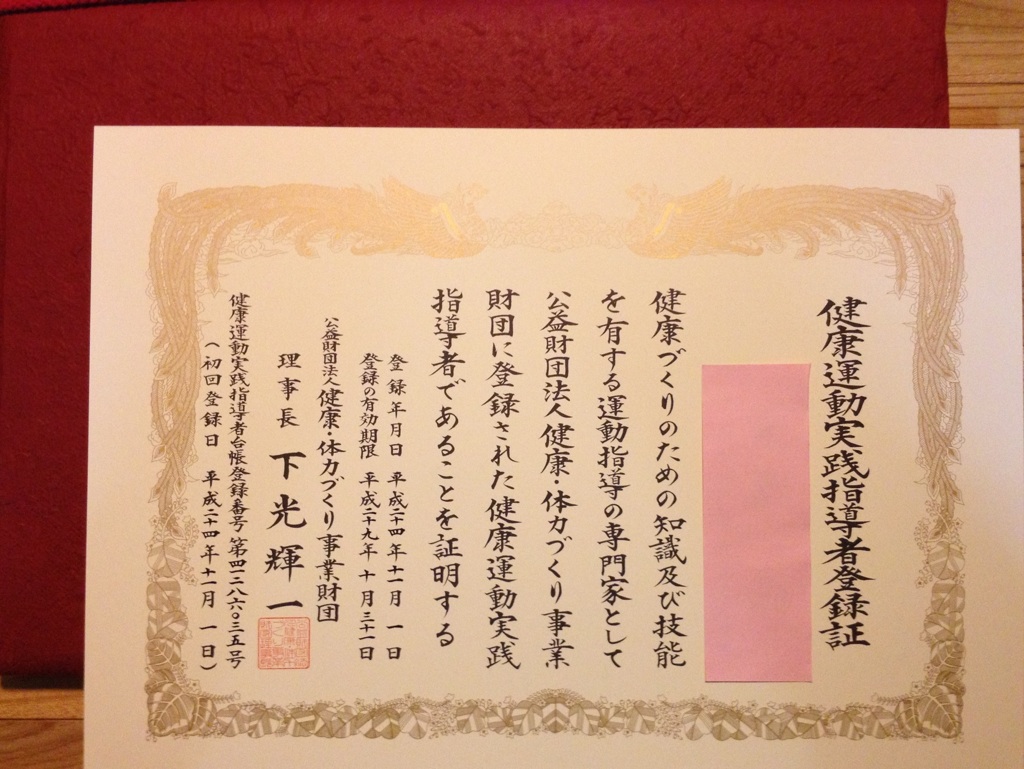 健康運動実践指導者登録証
健康づくりのための知識及び技能
を有する運動指導の専門家として
公益財団法人健康・体力づくり事業
財団に登録された健康運動実践
指導者であることを証明する
登録年月日 平成二十四年十一月一日
登録の有効期限 平成二十九年十月三十一日
公益財団法人健康・体力づくり事業財団
理事長 下光輝一
健康運動実践指導者台帳登録番号 第四二八六〇三五号
(初回登録日 平成二十四年十一月一日)